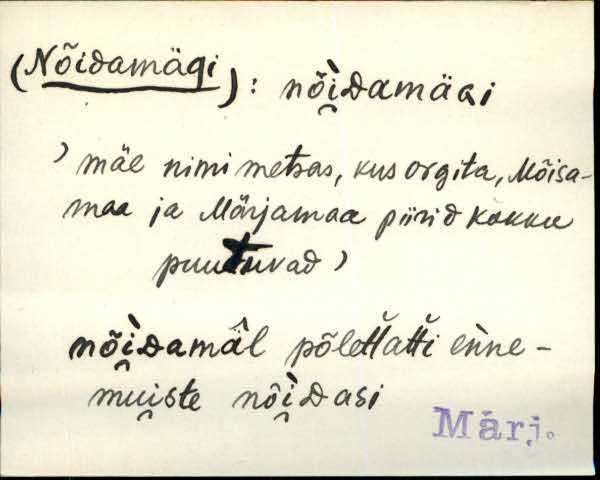 (Nõidamägi) : nõì̯Damäɢi
) mäe nimi metsas, kus Orgita, Mõisa-
maa ja Märjamaa piirid kokku
puutuvad )
nõì̯Damä̂l põlettatti enne-
mui̯ste nõì̯Dasi
Märj.